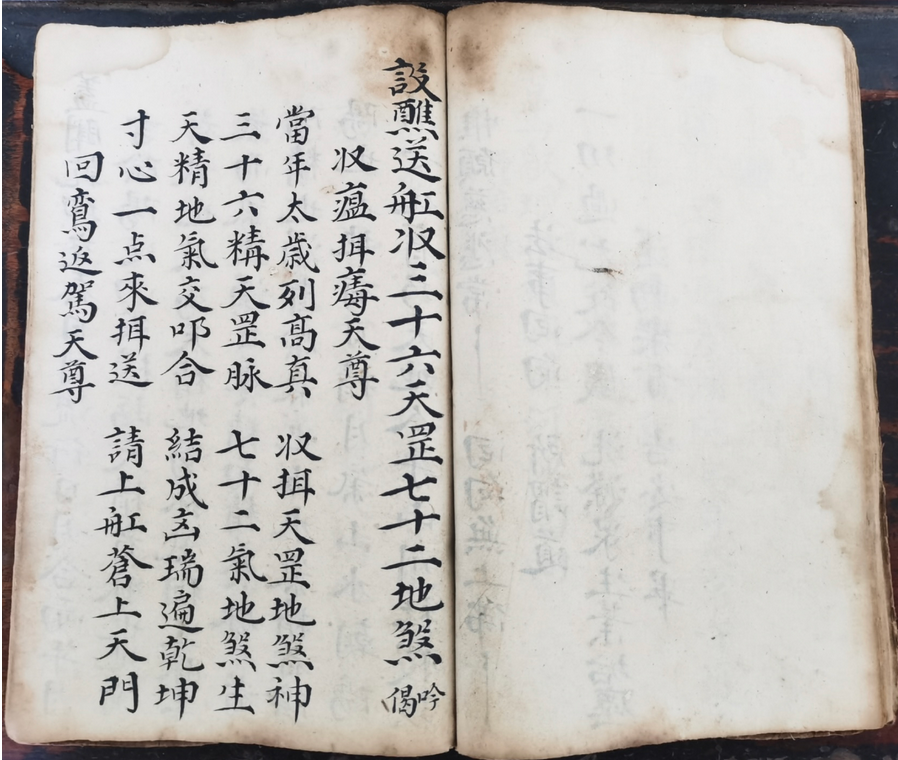 設醮送舡収三十六天罡七十二地煞 吟偈
収瘟押毒天尊
當年太歲列高真 収押天罡地煞神
三十六精天罡脉 七十二氣地煞生
天精地氣交叩合 結成凶瑞遍乾坤
寸心一点來押送 請上舡蒼上天門
回鸞返駕天尊